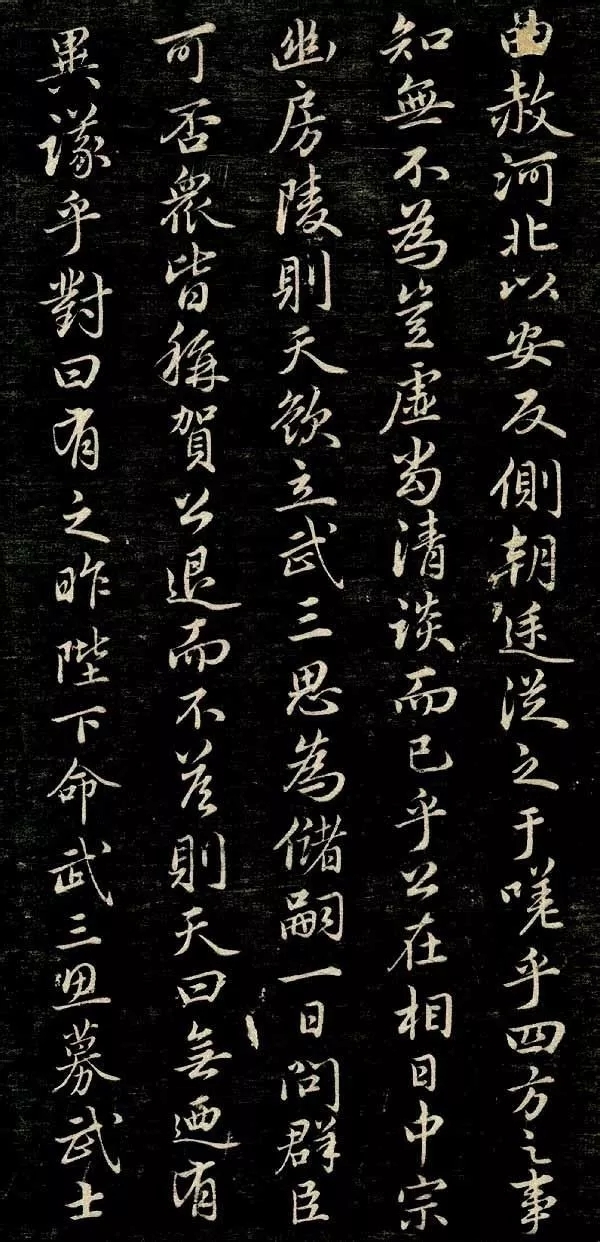 曲赦河北以安反側朝廷從之于嗟乎四方之事
知無不為豈虛尚清談而已乎公在相日中宗
幽房陵則天欲立武三思為儲嗣一日問群臣
可否眾皆稱賀公退而不荅則天曰無迺有
異議乎對曰有之昨陛下命武三思募武士